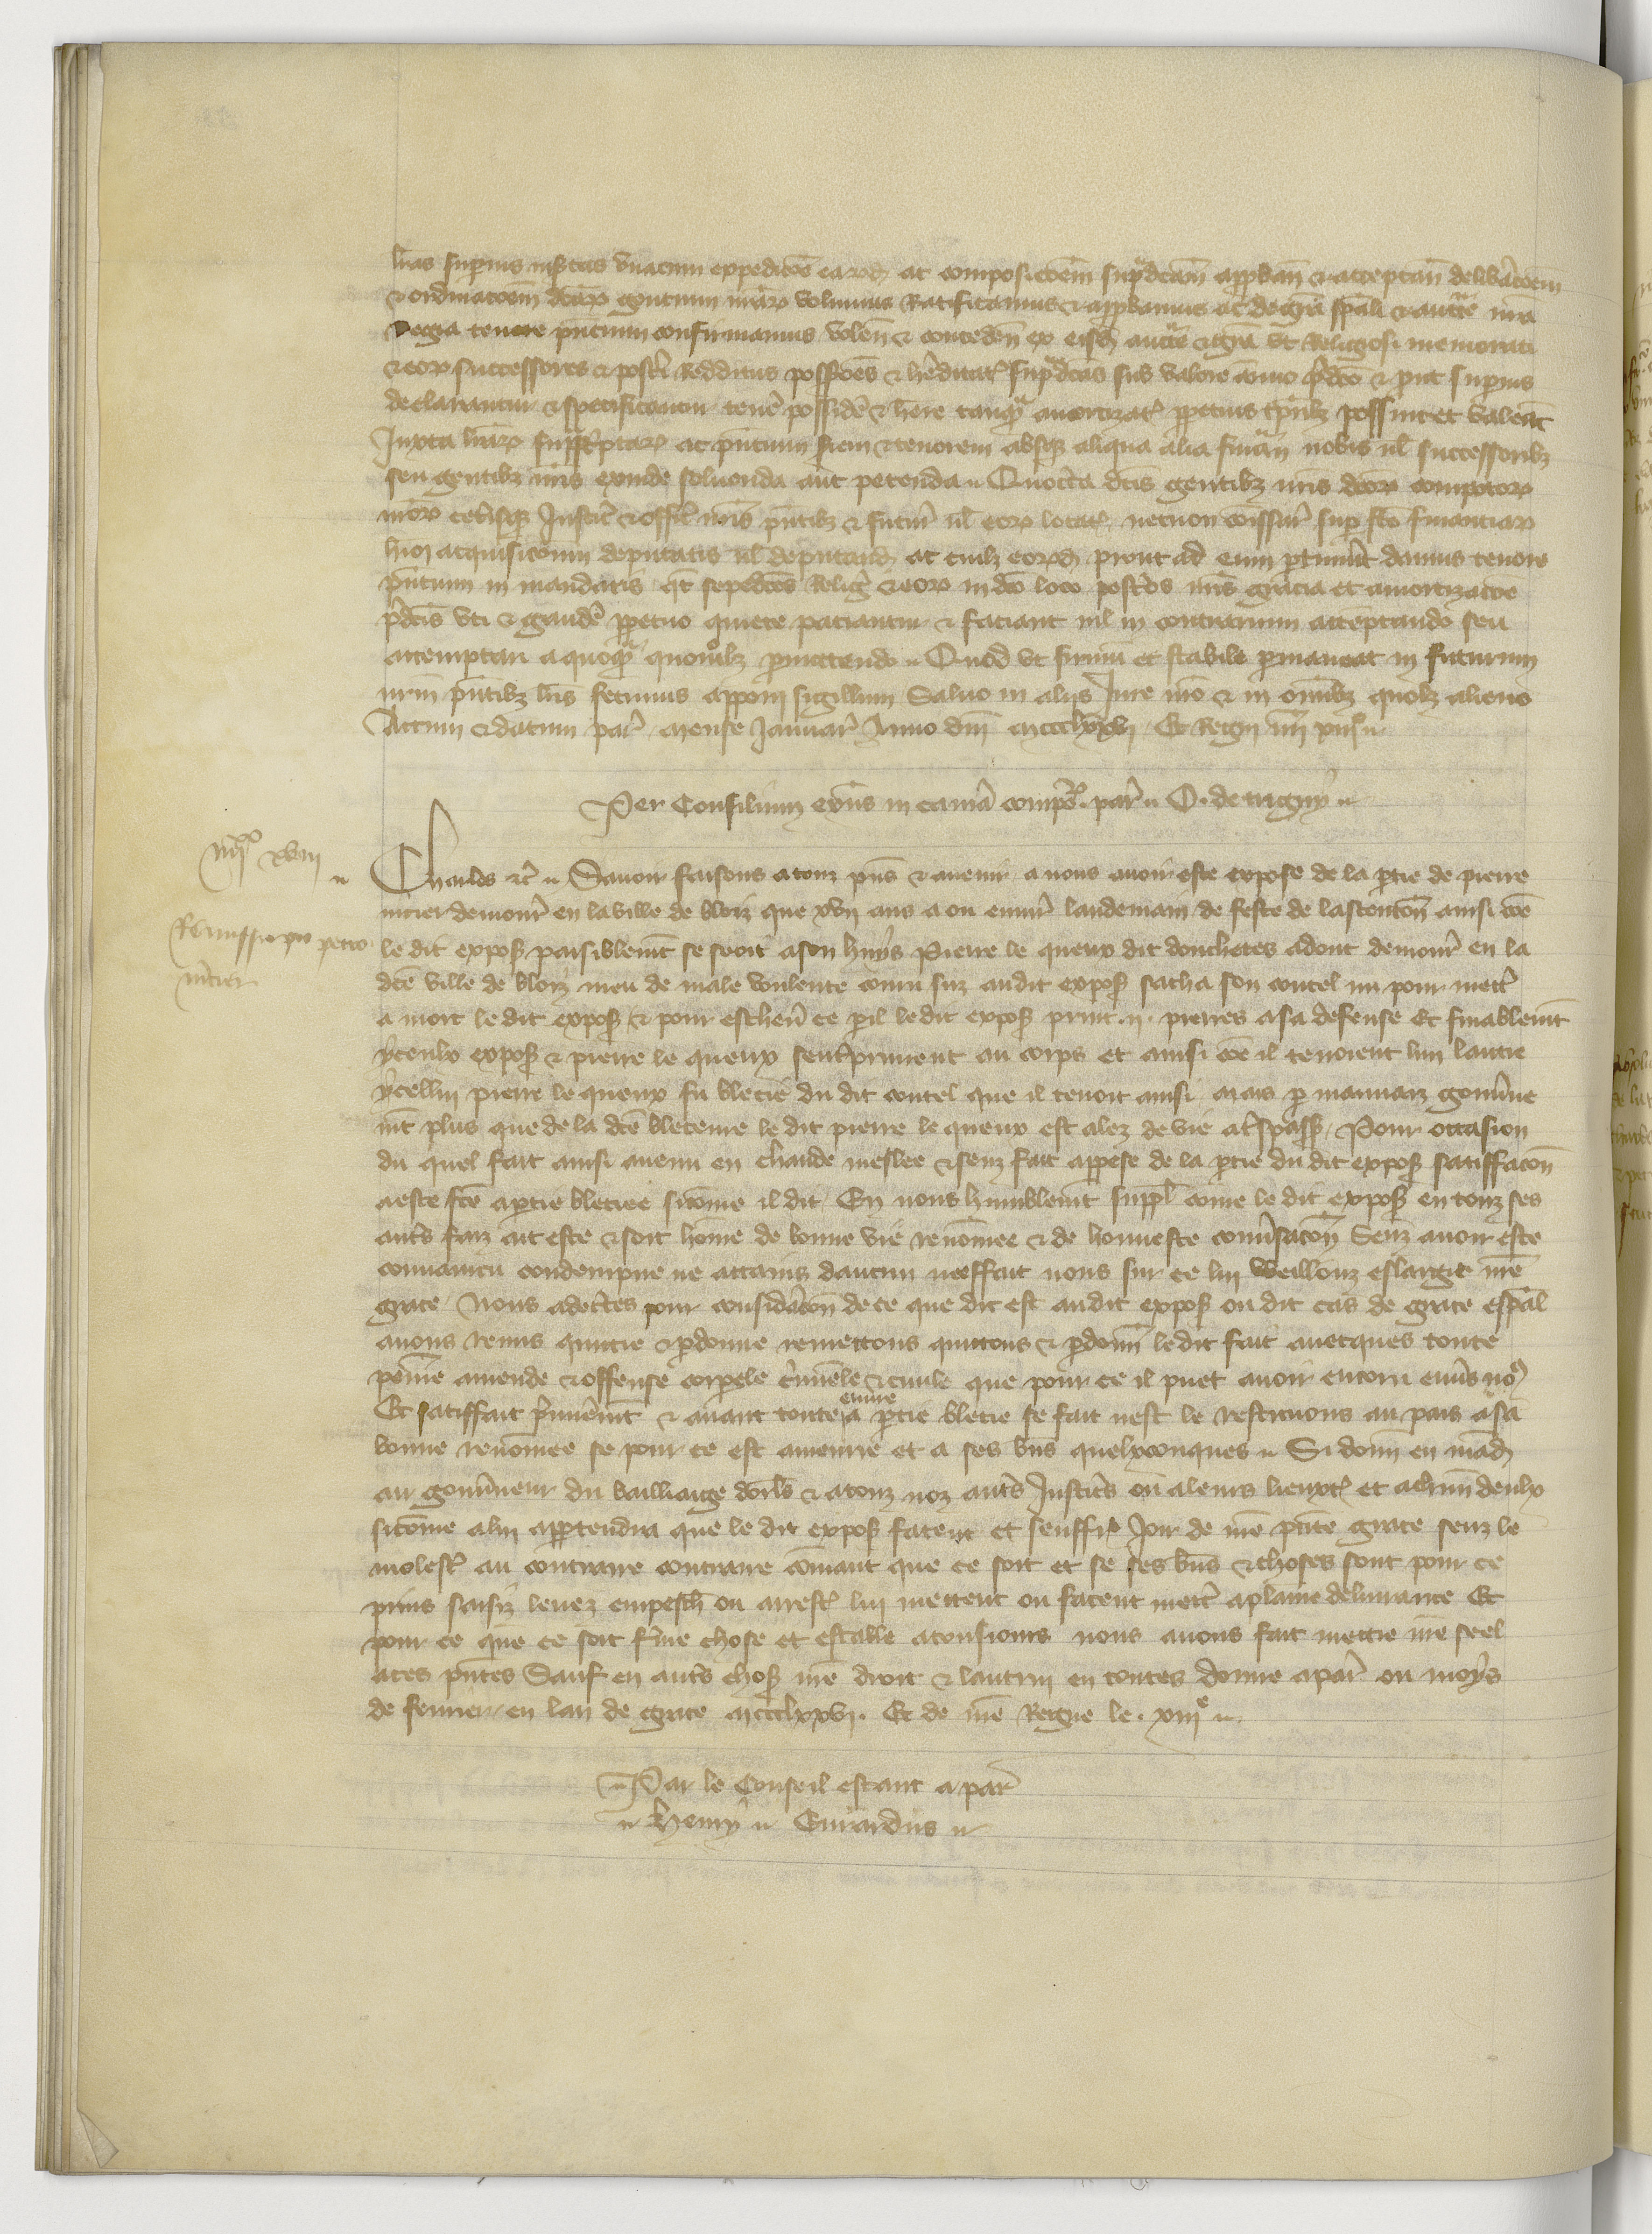 lras superius insertas vnacum expedicoe earumd ac composicoem supradcam approban & acceptan deliberacoem
& ordinacoem dcarum gencium nrarum volumus Ratificamus & approbamus ac de gra spali & aucte nra
Regia tenore pncium confirmamus volen & conceden ex eisd aucte & gra vt Religiosi memorati
& eorum successores & posteri Redditus possoes & hereditat supradcas sub valore annuo predco & prout superius
declarantur & specificantur tenere possidere & here tanqua amortizat perpetuis tpribz possint et valeant
Iuxta lrarum suprascptarum ac pncium seriem & tenorem absqz aliqua alia financia nobis ul successoribz
seu gentibz nris exinde soluenda aut petenda Quocirca dcis gentibz nris dcorum compotorum
nrorum ceterisqz Justic & offic nris pntibz & futuris ul eorum locat necnon comissar super fco financiarum
hmoi acquisicionum deputatis ul deputand ac cuilz eorumd prout ad eum ptinuit damus tenore
pncium in mandatis qt sepedcos Relig & eorum in dco loco posteros nris gracia et amortizacoe
predcis vti & gaudere perpetuo quiete paciantur & faciant nil in contrarium acceptando seu
attemptari a quoqua quomolz permittendo Quod vt firmum et stabile permaneat in futurum
nrm pntibz lris fecimus apponi sigillum Saluo in aliis Jure nro & in omibz quolz alieno
Actum & datum par mense Januar Anno dni mccclxxvj Et Regni nri xiij
Per Consilium exns in camera compor par O. de trigny
iiijxx xviij
Charles &c Sauoir faisons a touz pns & auenir a nous auoir este expose de la ptie de pierre
mercier demour en la ville de bloiz que xvij ans a ou enuir landemain de feste de lascencion ainsi coe
Remissio pro petro
mercier
le dit expos paisiblemt se seoit a son huys Pierre le queux dit donchetes adont demour en la
dce ville de bloiz meu de male voulente couru sur audit expos sacha son coutel nu pour mettre
a mort le dit expos & pour escheuer ce pil le dit expos print .ij. pierres a sa defense Et finablemt
yceulx expos & pierre le queux sentreprinrent au corps et ainsi coe il tenoient lun lautre
ycellui pierre le queux fu blecie du dit coutel que il tenoit ainsi mais p mauuaiz gouuerne
mt plus que de la dce bleceure le dit pierre le queux est alez de vie a trespass Pour occasion
du quel fait ainsi auenu en chaude meslee & senz fait appense de la ptie du dit expos satiffacon
a este fce a ptie bleciee sicome il dit En nous humblemt suppl come le dit expos en touz ses
autrs faiz ait este & soit home de bonne vie renomee & de honneste conuersacon Senz auoir este
conuaincu condempne ne attains daucun meffait nous sur ce lui Weillonz eslargir nre
grace Nous adecertes pour consideracon de ce que dit est au dit expos ou dit cas de grace espal
auons remis quictie & pdonne remettons quictons & pdonn le dit fait auecques toute
peine amende & offense corpele criminele & ciuile que pour ce il puet auoir encoru enuers nos
Et satiffait premieremt & auant toute euure a ptie blecie se fait nest le restituons au pais a sa
bonne renomee se pour ce est amenrie et a ses bns quelxconques Si donn en mand
au gouuerneur du bailliaige dorls & a touz noz autrs Justicrs ou a leurs lieuxt et a chun deulx
sicome a lui appartendra que le dit expos facent et seuffr Joir de nre pnte grace senz le
molest au contraire contraire comant que ce soit et se ses bns & choses sont pour ce
prins saisiz leuez empesch ou arrest lui mettent ou facent mettre a plaine deliurance Et
pour ce que ce soit ferme chose et estable a tousiours nous auons fait mettre nre seel
a ces pntes Sauf en autrs chos nre droit & lautrui en toutes donne a par ou moys
de feurier en lan de grace mccclxxvj. Et de nre Regne le .xiije
Par le Conseil estant a par
Henry Euuardus